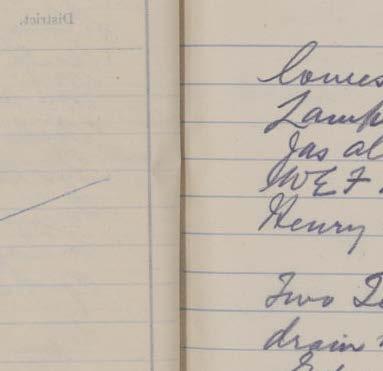 District.
Comes
Lamp
Jas al
W E F
Henry
Two
drain